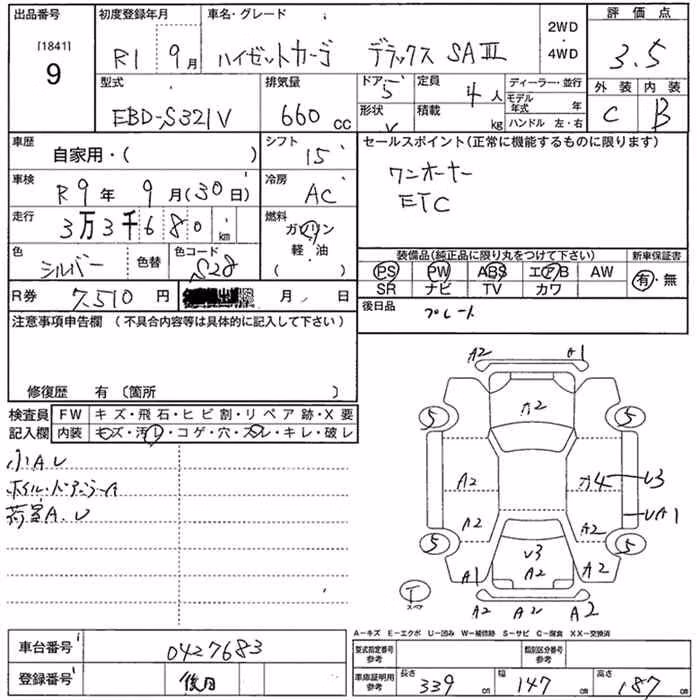 出品番号 初度登録年月 車名・グレード 2WD 評価点
[1841] 9 R1 9月 ハイゼットカーゴ デラックス SAⅢ 4WD 3.5
型式 排気量 ドア 5 定員 4人 ディーラー・並行 外装 内装
EBD-S321V 660cc 形状 V 積載 kg モデル年式 年 C B
ハンドル 左・右
車歴 自家用・( ) シフト 15 セールスポイント(正常に機能するものに限ります)
車検 R9年 9月(30日) 冷房 AC ワンオーナー
走行 3万3千680km 燃料 ガソリン ETC
軽・油
( )
色 シルバー 色替 色コード S28 装備品(純正品に限り丸をつけて下さい) 新車保証書
PS PW ABS エアB AW 有・無
SR ナビ TV カワ
R券 7,510円 月 日 後日品 プレート
注意事項申告欄 (不具合内容等は具体的に記入して下さい)
修復歴 有〔箇所 〕
検査員 FW キズ・飛石・ヒビ割・リペア跡・X要
記入欄 内装 キズ・汚レ・コゲ・穴・スレ・キレ・破レ
小A.U
荷室A.U
A2 A1
A2
5 5
A2 カ4 U3
UA1
A2 A2
5 5
U3
A1 A2 A2
T スペア
A2 A2 A2
A-キズ E-エクボ U-凹み W-補修跡 S-サビ C-腐食 XX-交換済
車台番号 0427683 型式指定番号 参考 類別区分番号 参考
登録番号 後日 車庫証明用 参考 長さ 339cm 幅 147cm 高さ 187cm